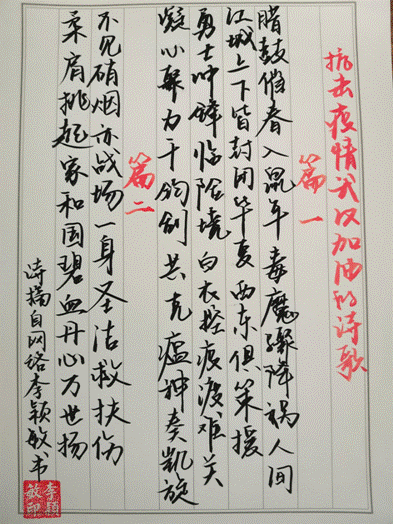 抗击疫情武汉加油的诗歌
篇一
腊鼓催春入鼠年毒魔骤降祸人间
江城上下皆封闭华夏西东俱策援
勇士冲锋临险境白衣控疫渡难关
凝心聚力千钧剑共克瘟神奏凯旋
篇二
不见硝烟亦战场一身圣洁救扶伤
柔肩挑起家和国碧血丹心万世扬
诗摘自网络李颖敏书
李颖敏印